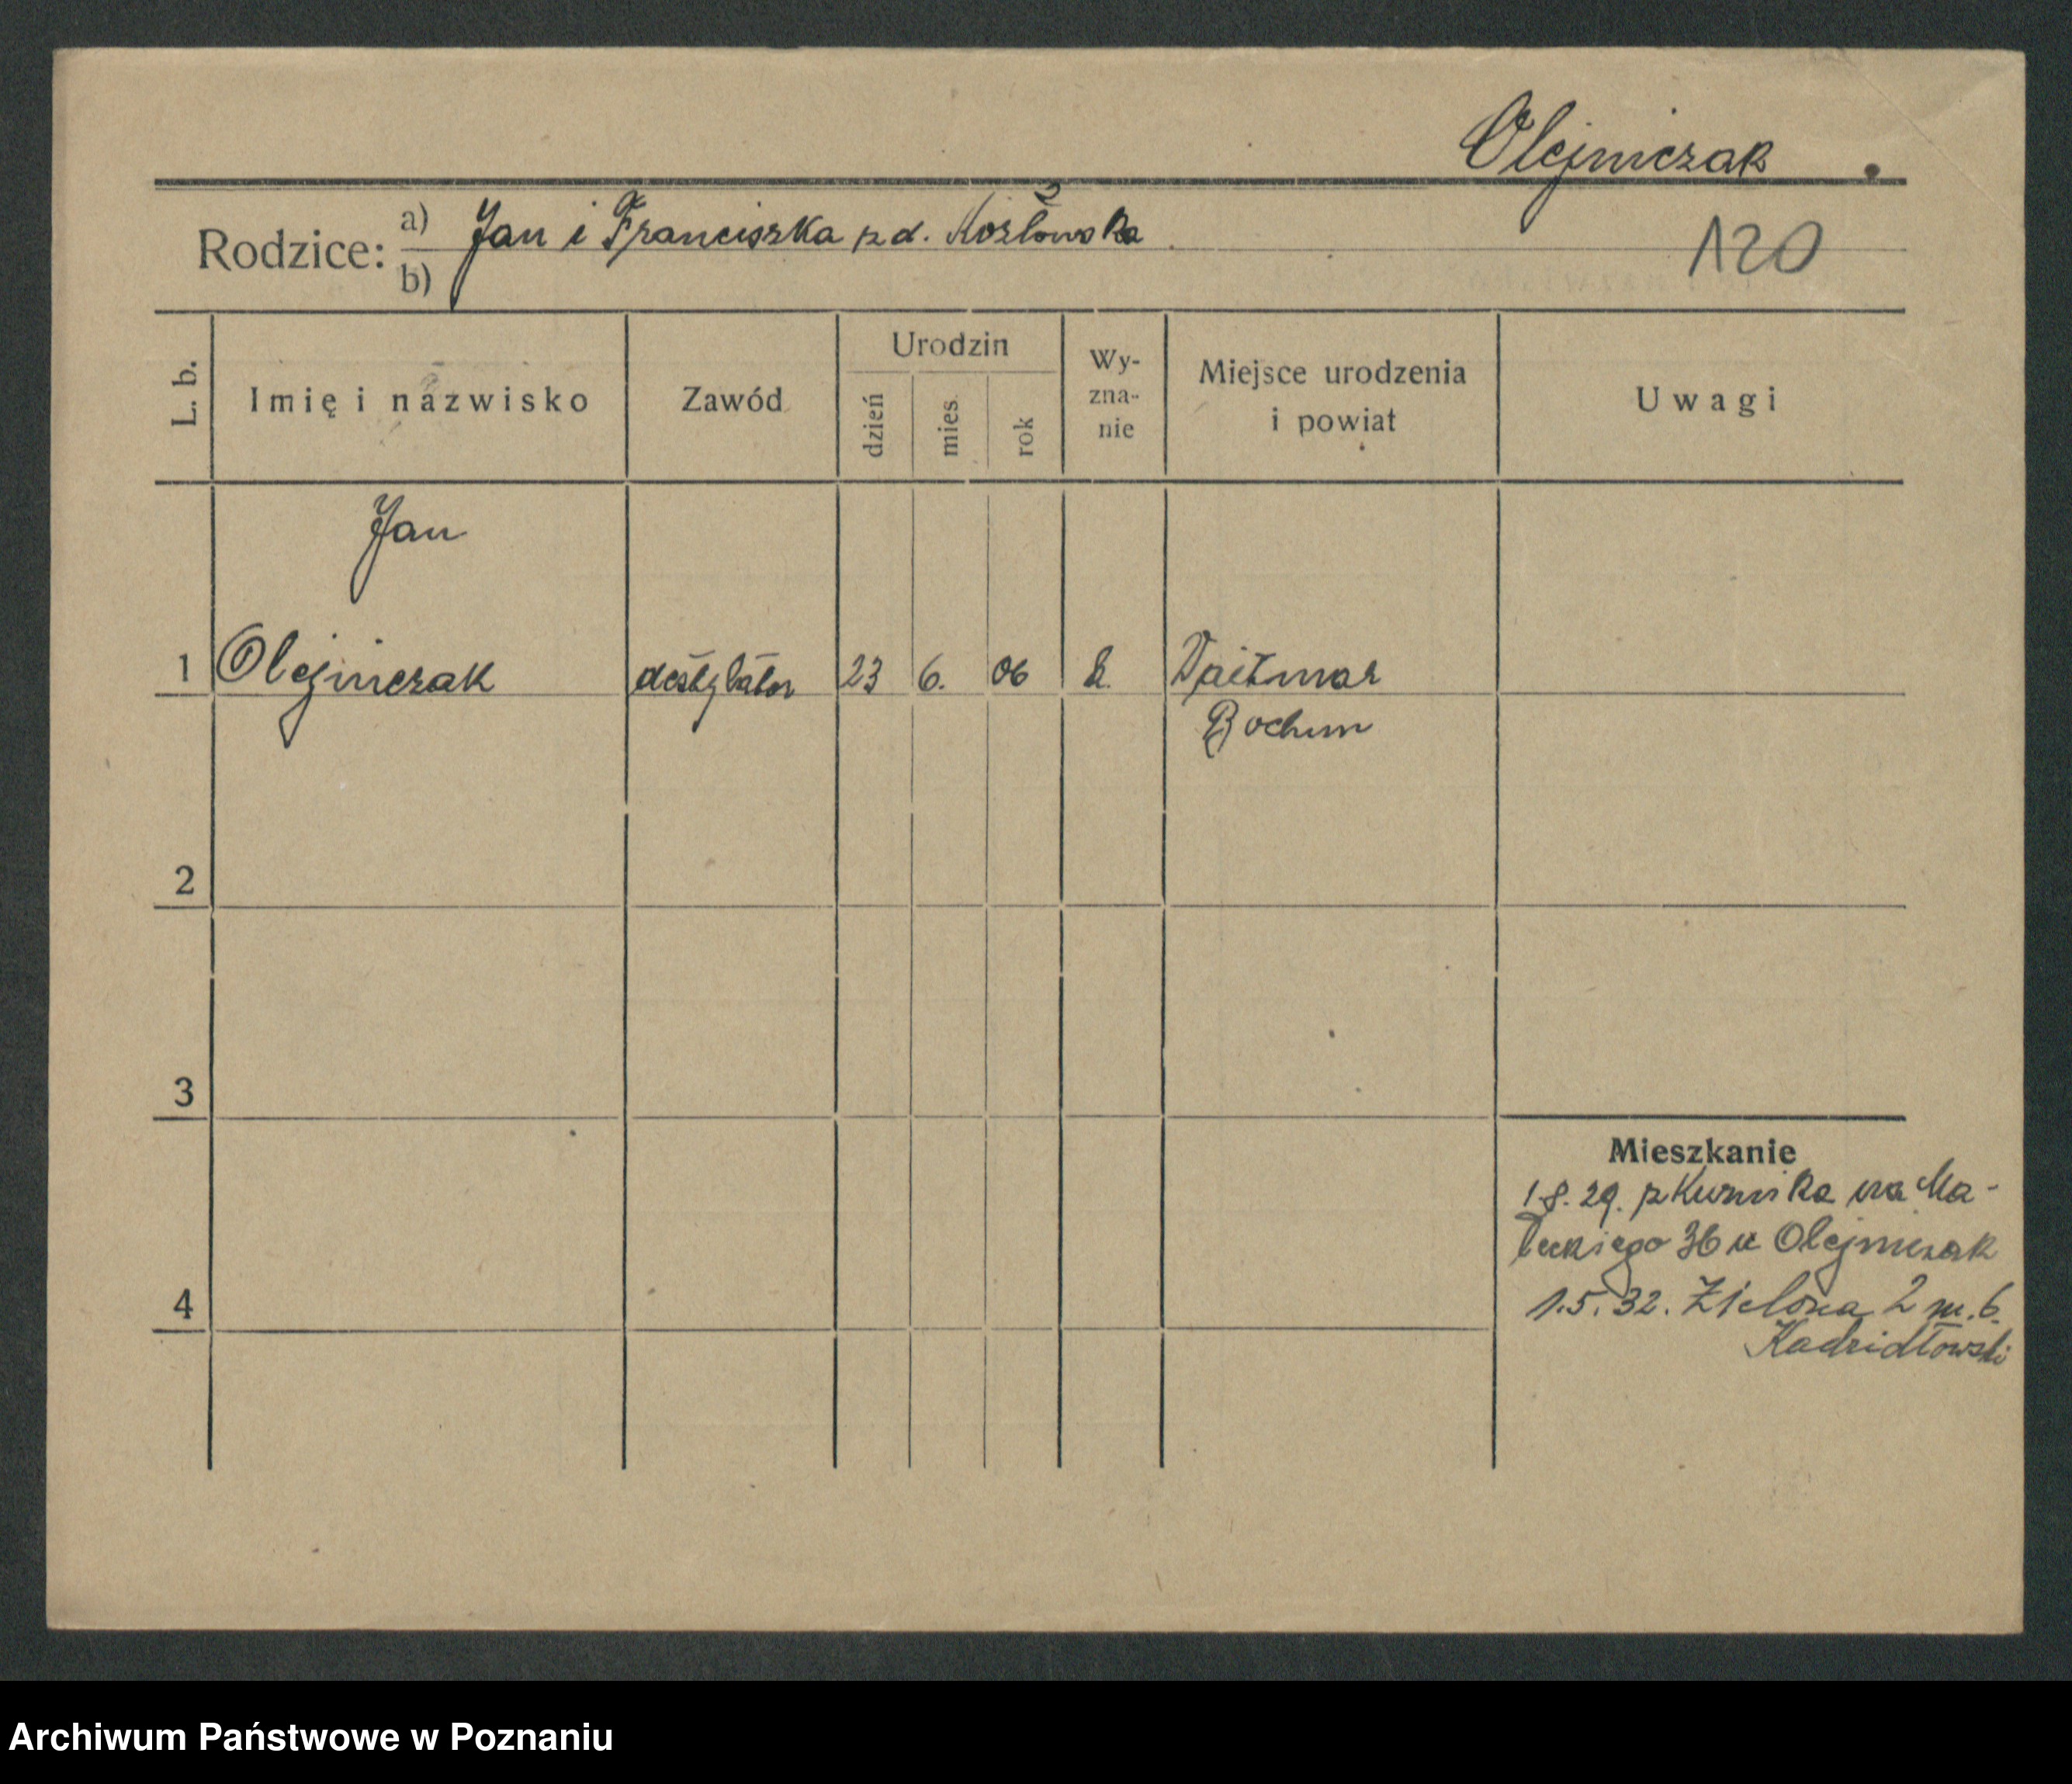 Olejniczak
Rodzice: a) Jan i Franciszka z d. Kozłowska
b)
120
L. b.
Imię i nazwisko
Zawód
Urodzin
dzień
mies.
rok
Wy-
zna-
nie
Miejsce urodzenia
i powiat
Uwagi
Jan
1 Olejniczak destylator 23 6. 06 k. Vaitmar
Bochum
2
3
4
Mieszkanie
1.8.29. z Kurnika na Ma-
łeckiego 36 u Olejniczak
1.5.32. Zielona 2 m. 6.
Kadzidłowski
Archiwum Państwowe w Poznaniu